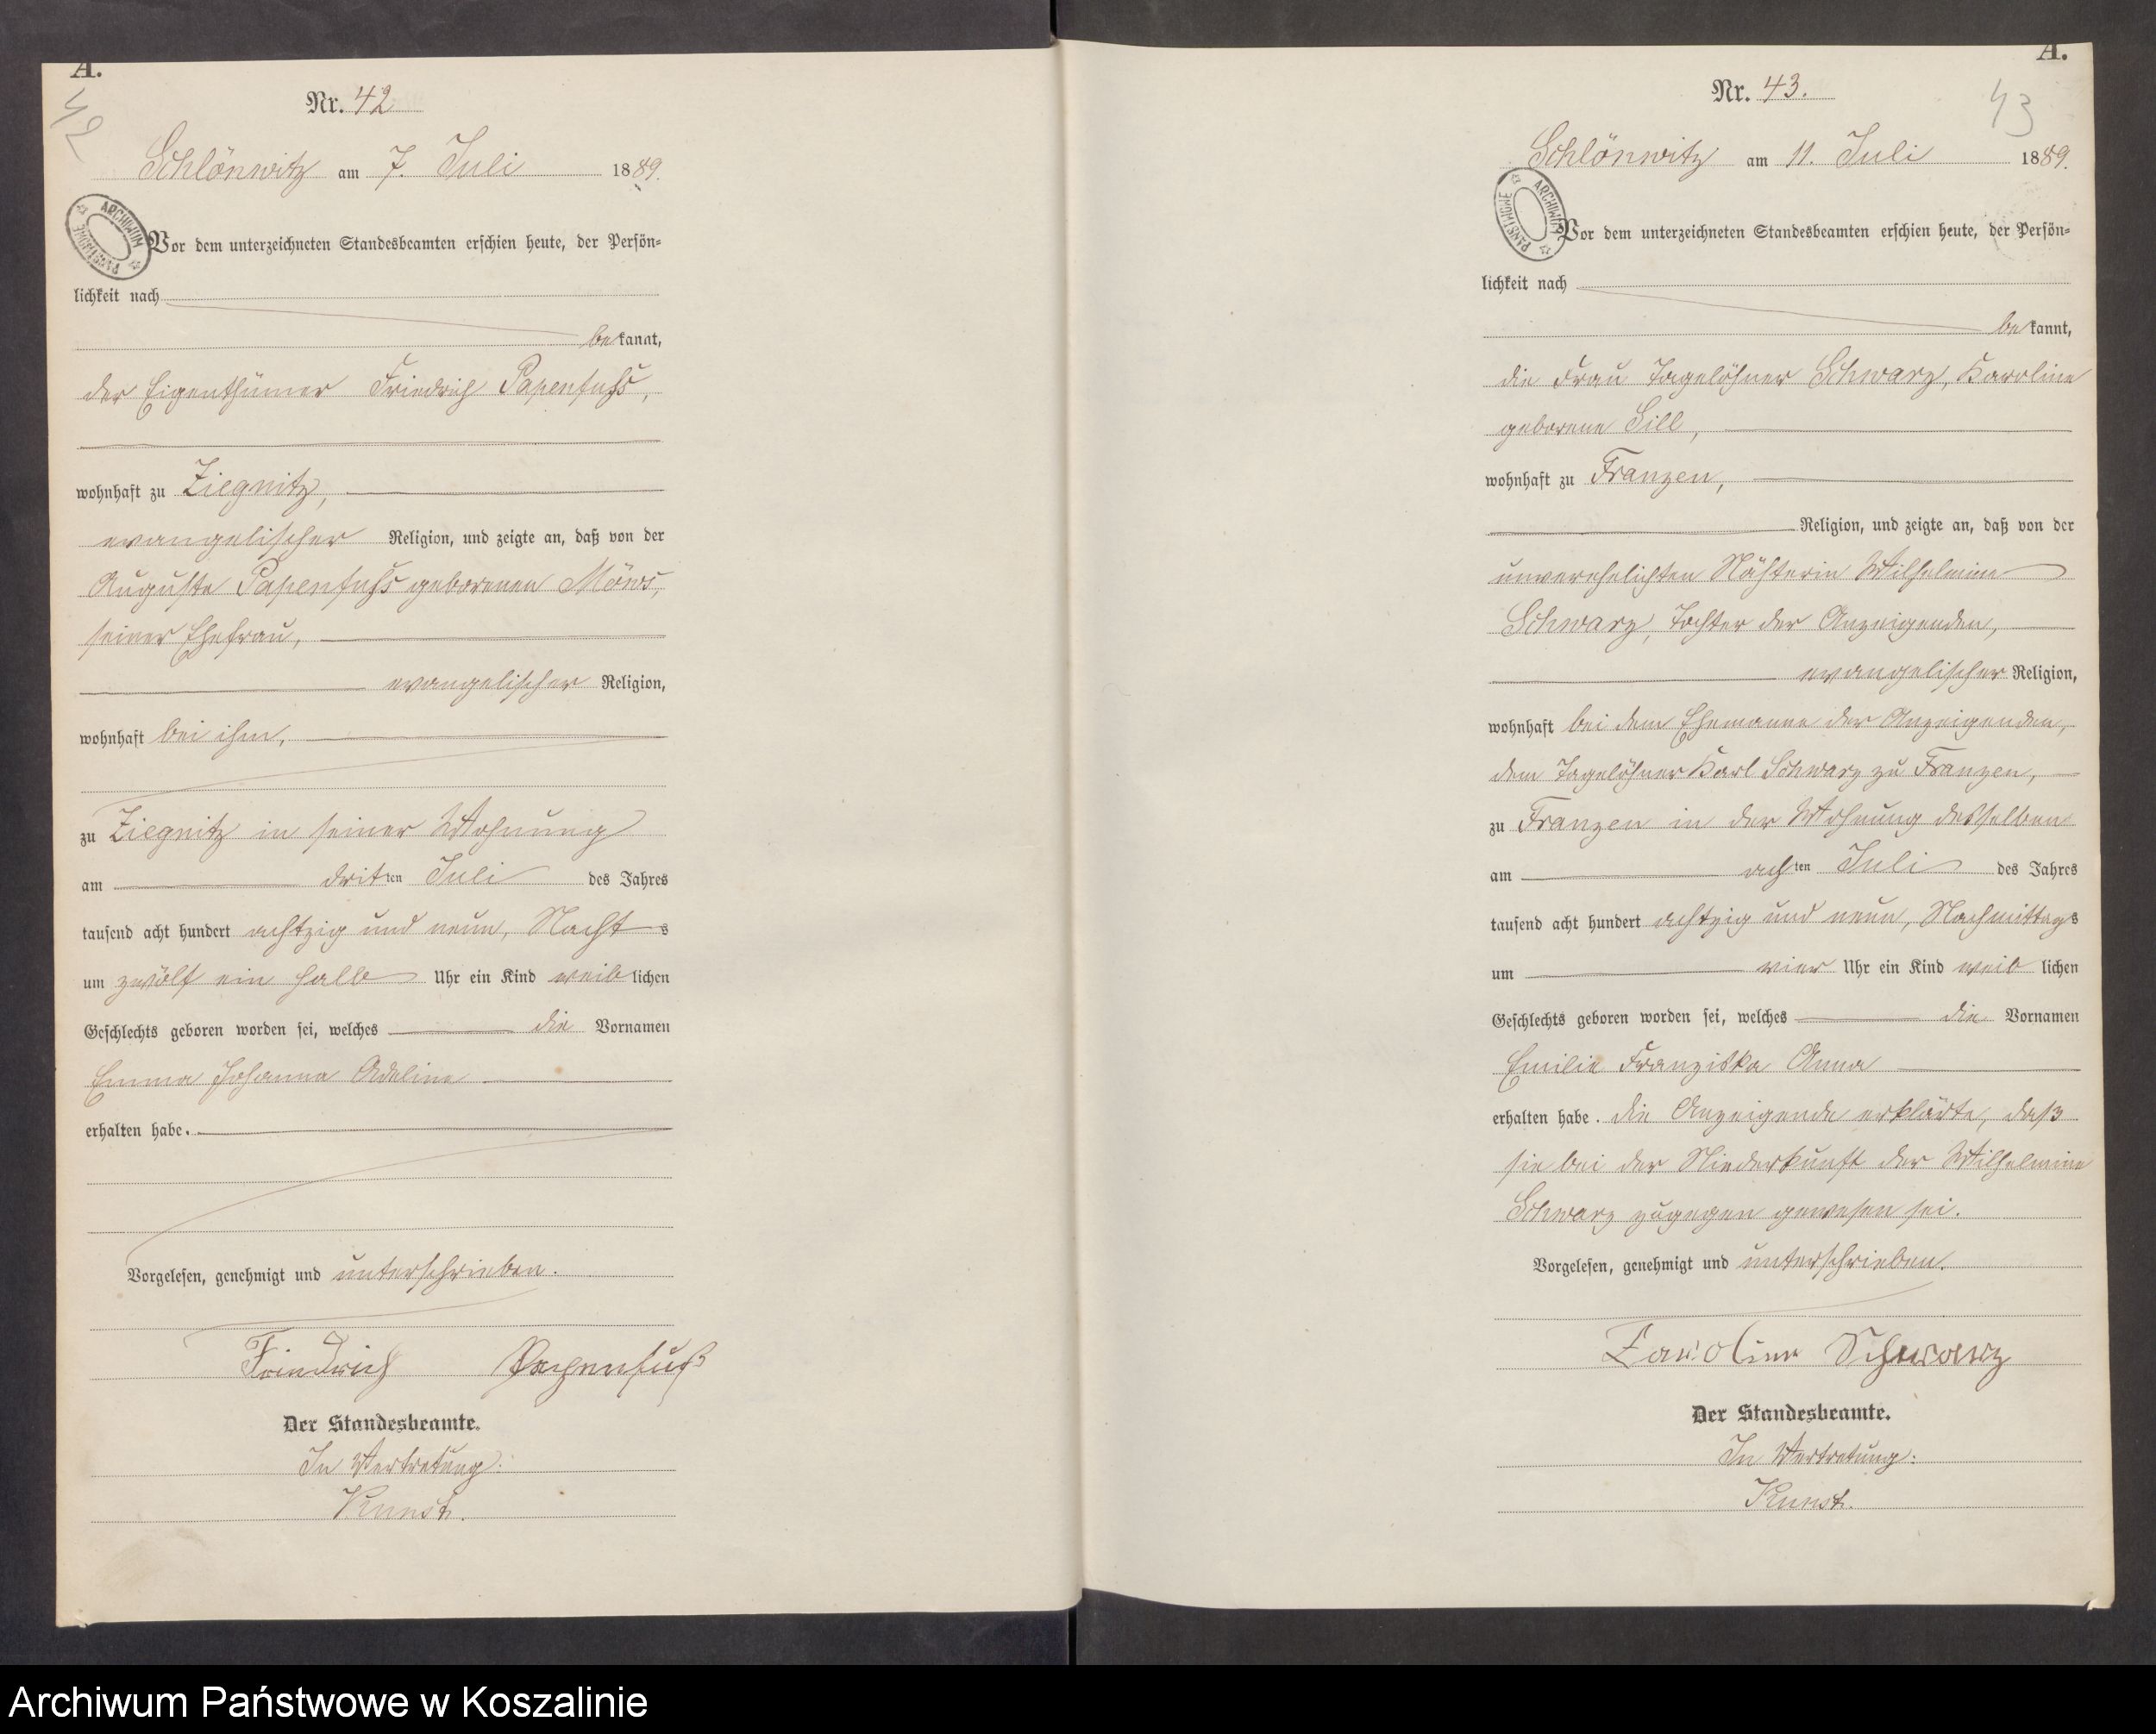 A.
42
Nr. 42
Schlönwitz am 7. Juli 1889.
ARCHIWUM PAŃSTWOWE
Vor dem unterzeichneten Standesbeamten erschien heute, der Persön-
lichkeit nach
bekannt,
der Eigenthümer Friedrich Papenfuhs,
wohnhaft zu Ziegnitz,
evangelischer Religion, und zeigte an, daß von der
Auguste Papenfuhs geborenen Möws,
seiner Ehefrau,
evangelischer Religion,
wohnhaft bei ihm,
zu Ziegnitz in seiner Wohnung
am dritten Juli des Jahres
tausend acht hundert achtzig und neun, Nachts
um zwölf ein halb Uhr ein Kind weiblichen
Geschlechts geboren worden sei, welches die Vornamen
Emma Johanna Adeline
erhalten habe.
Vorgelesen, genehmigt und unterschrieben.
Friedrich Papenfuß
Der Standesbeamte.
In Vertretung:
Kunst.
A.
43
Nr. 43.
Schlönwitz am 11. Juli 1889.
ARCHIWUM PAŃSTWOWE
Vor dem unterzeichneten Standesbeamten erschien heute, der Persön-
lichkeit nach
bekannt,
die Frau Tagelöhner Schwarz, Karoline
geborene Sill,
wohnhaft zu Franzen,
Religion, und zeigte an, daß von der
unverehelichten Nähterin Wilhelmine
Schwarz, Tochter der Anzeigenden,
evangelischer Religion,
wohnhaft bei dem Ehemanne der Anzeigenden,
dem Tagelöhner Karl Schwarz zu Franzen,
zu Franzen in der Wohnung desselben
am achten Juli des Jahres
tausend acht hundert achtzig und neun, Nachmittags
um vier Uhr ein Kind weiblichen
Geschlechts geboren worden sei, welches die Vornamen
Emilie Franziska Anna
erhalten habe. Die Anzeigende erklärte, daß
sie bei der Niederkunft der Wilhelmine
Schwarz zugegen gewesen sei.
Vorgelesen, genehmigt und unterschrieben.
Karoline Schwarz
Der Standesbeamte.
In Vertretung:
Kunst.
Archiwum Państwowe w Koszalinie